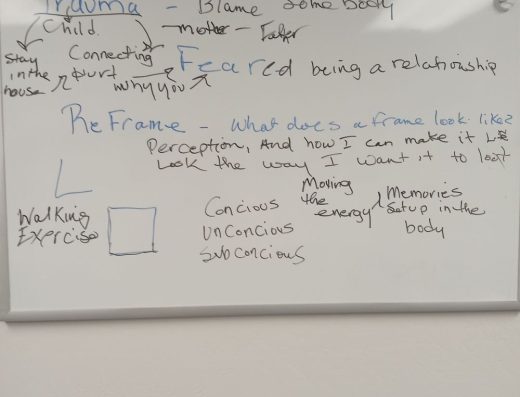 Trauma - Blame Some body
Child. - mother - Father
stay in the house
Connecting
Hurt
Why you
Feared being a relationship
ReFrame - What does a frame look like?
Perception, And how I can make it
Look the way I want it to look
Walking Exercise
Concious
UnConcious
Subconcious
Moving the energy
Memories Setup in the body